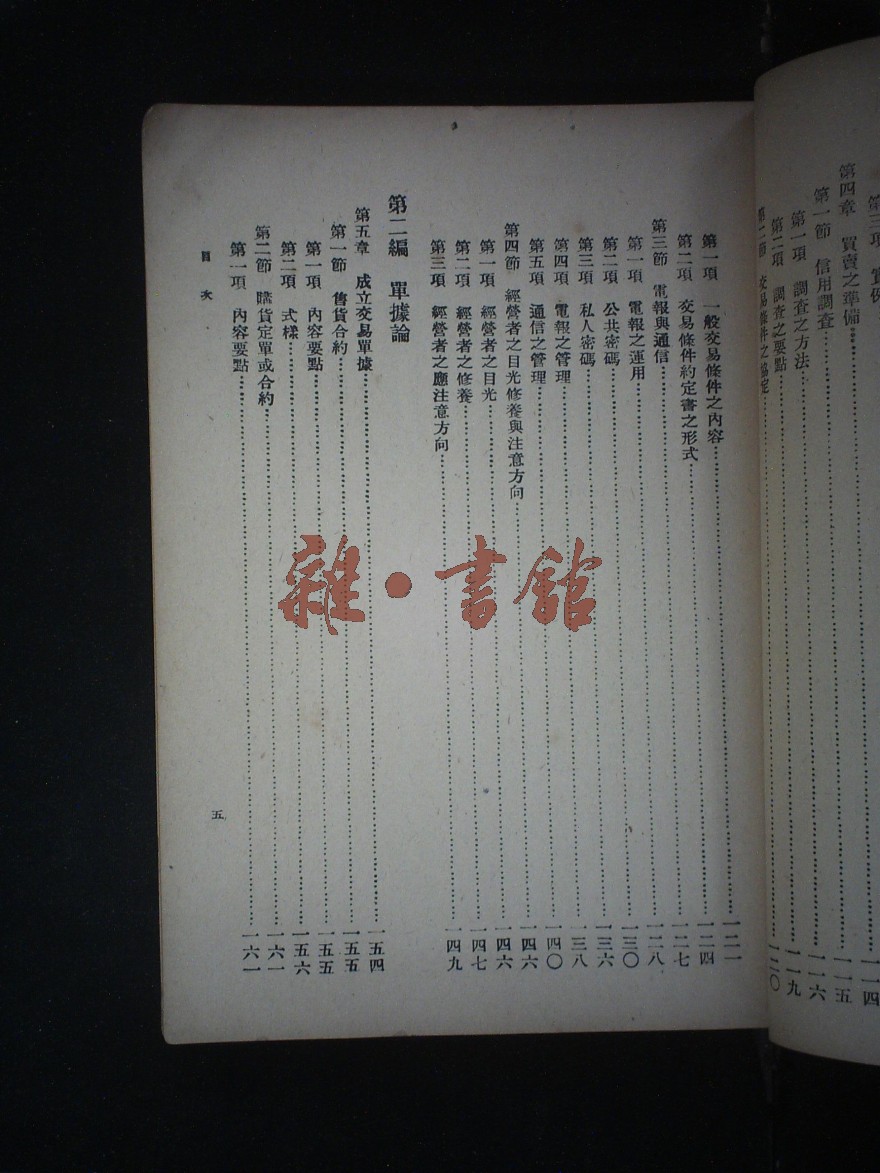 第三項 實例
第四章 買賣之準備……一一四
第一節 信用調查……一一五
第一項 調查之方法……一一六
第二項 調查之要點……一一九
第二節 交易條件之協定……一二〇
第一項 一般交易條件之內容……一二一
第二項 交易條件約定書之形式……一二四
第三節 電報與通信……一二七
第一項 電報之運用……一二八
第二項 公共密碼……一三〇
第三項 私人密碼……一三六
第四項 電報之管理……一三八
第五項 通信之管理……一四〇
第四節 經營者之目光修養與注意方向……一四六
第一項 經營者之目光……一四六
第二項 經營者之修養……一四七
第三項 經營者之應注意方向……一四九
第二編 單據論
第五章 成立交易單據……一五四
第一節 售貨合約……一五五
第一項 內容要點……一五五
第二項 式樣……一五六
第二節 購貨定單或合約……一六一
第一項 內容要點……一六一
目次
五
雜·書館